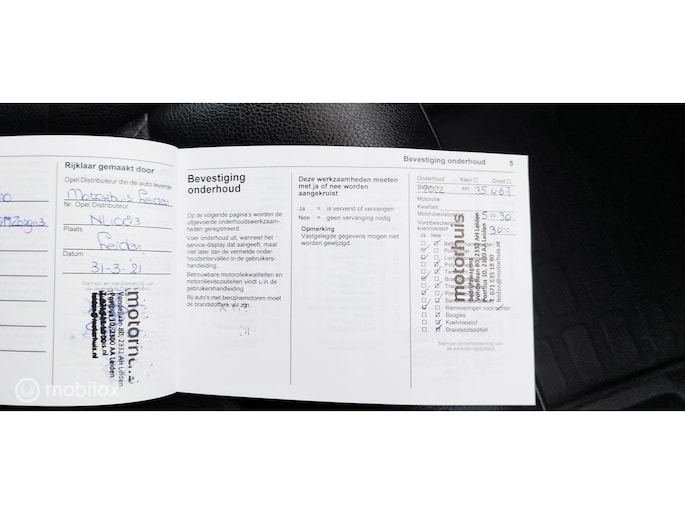 Rijklaar gemaakt door
Opel Distributeur die de auto leverde
Motorhuis Leiden
Nr. Opel Distributeur
Plaats
Leiden
Datum
31-3-'21
motorhuis
Vondellaan 80, 2332 AH Leiden
Postbus 10, 2300 AA Leiden
Bevestiging
onderhoud
Op de volgende pagina's worden de
uitgevoerde onderhoudswerkzaam-
heden geregistreerd.
Voer onderhoud uit, wanneer het
service-display dat aangeeft, maar
niet later dan de vermelde onder-
houdsintervallen in de gebruikers-
handleiding.
Betrouwbare motoroliekwaliteiten en
motorolieviscositeiten vindt u in de
gebruikershandleiding.
Bij auto's met benzinemotoren moet
de brandstoftank vol zijn.
Deze werkzaamheden moeten
met ja of nee worden
aangekruist
Ja = is ververst of vervangen
Nee = geen vervanging nodig
Opmerking
Vastgelegde gegevens mogen niet
worden gewijzigd.
Bevestiging onderhoud 5
Onderhoud Klein Groot
2022 km 35.467
Motorolie
Kwaliteit:
5 w 30
koelvloeistof
30°C
Ja Nee
Bougies
Koelvloeistof
Brandstofadditief
motorhuis
Vondellaan 80, 2332 AH Leiden
Postbus 10, 2300 AA Leiden
071 535 18 80
mobilox